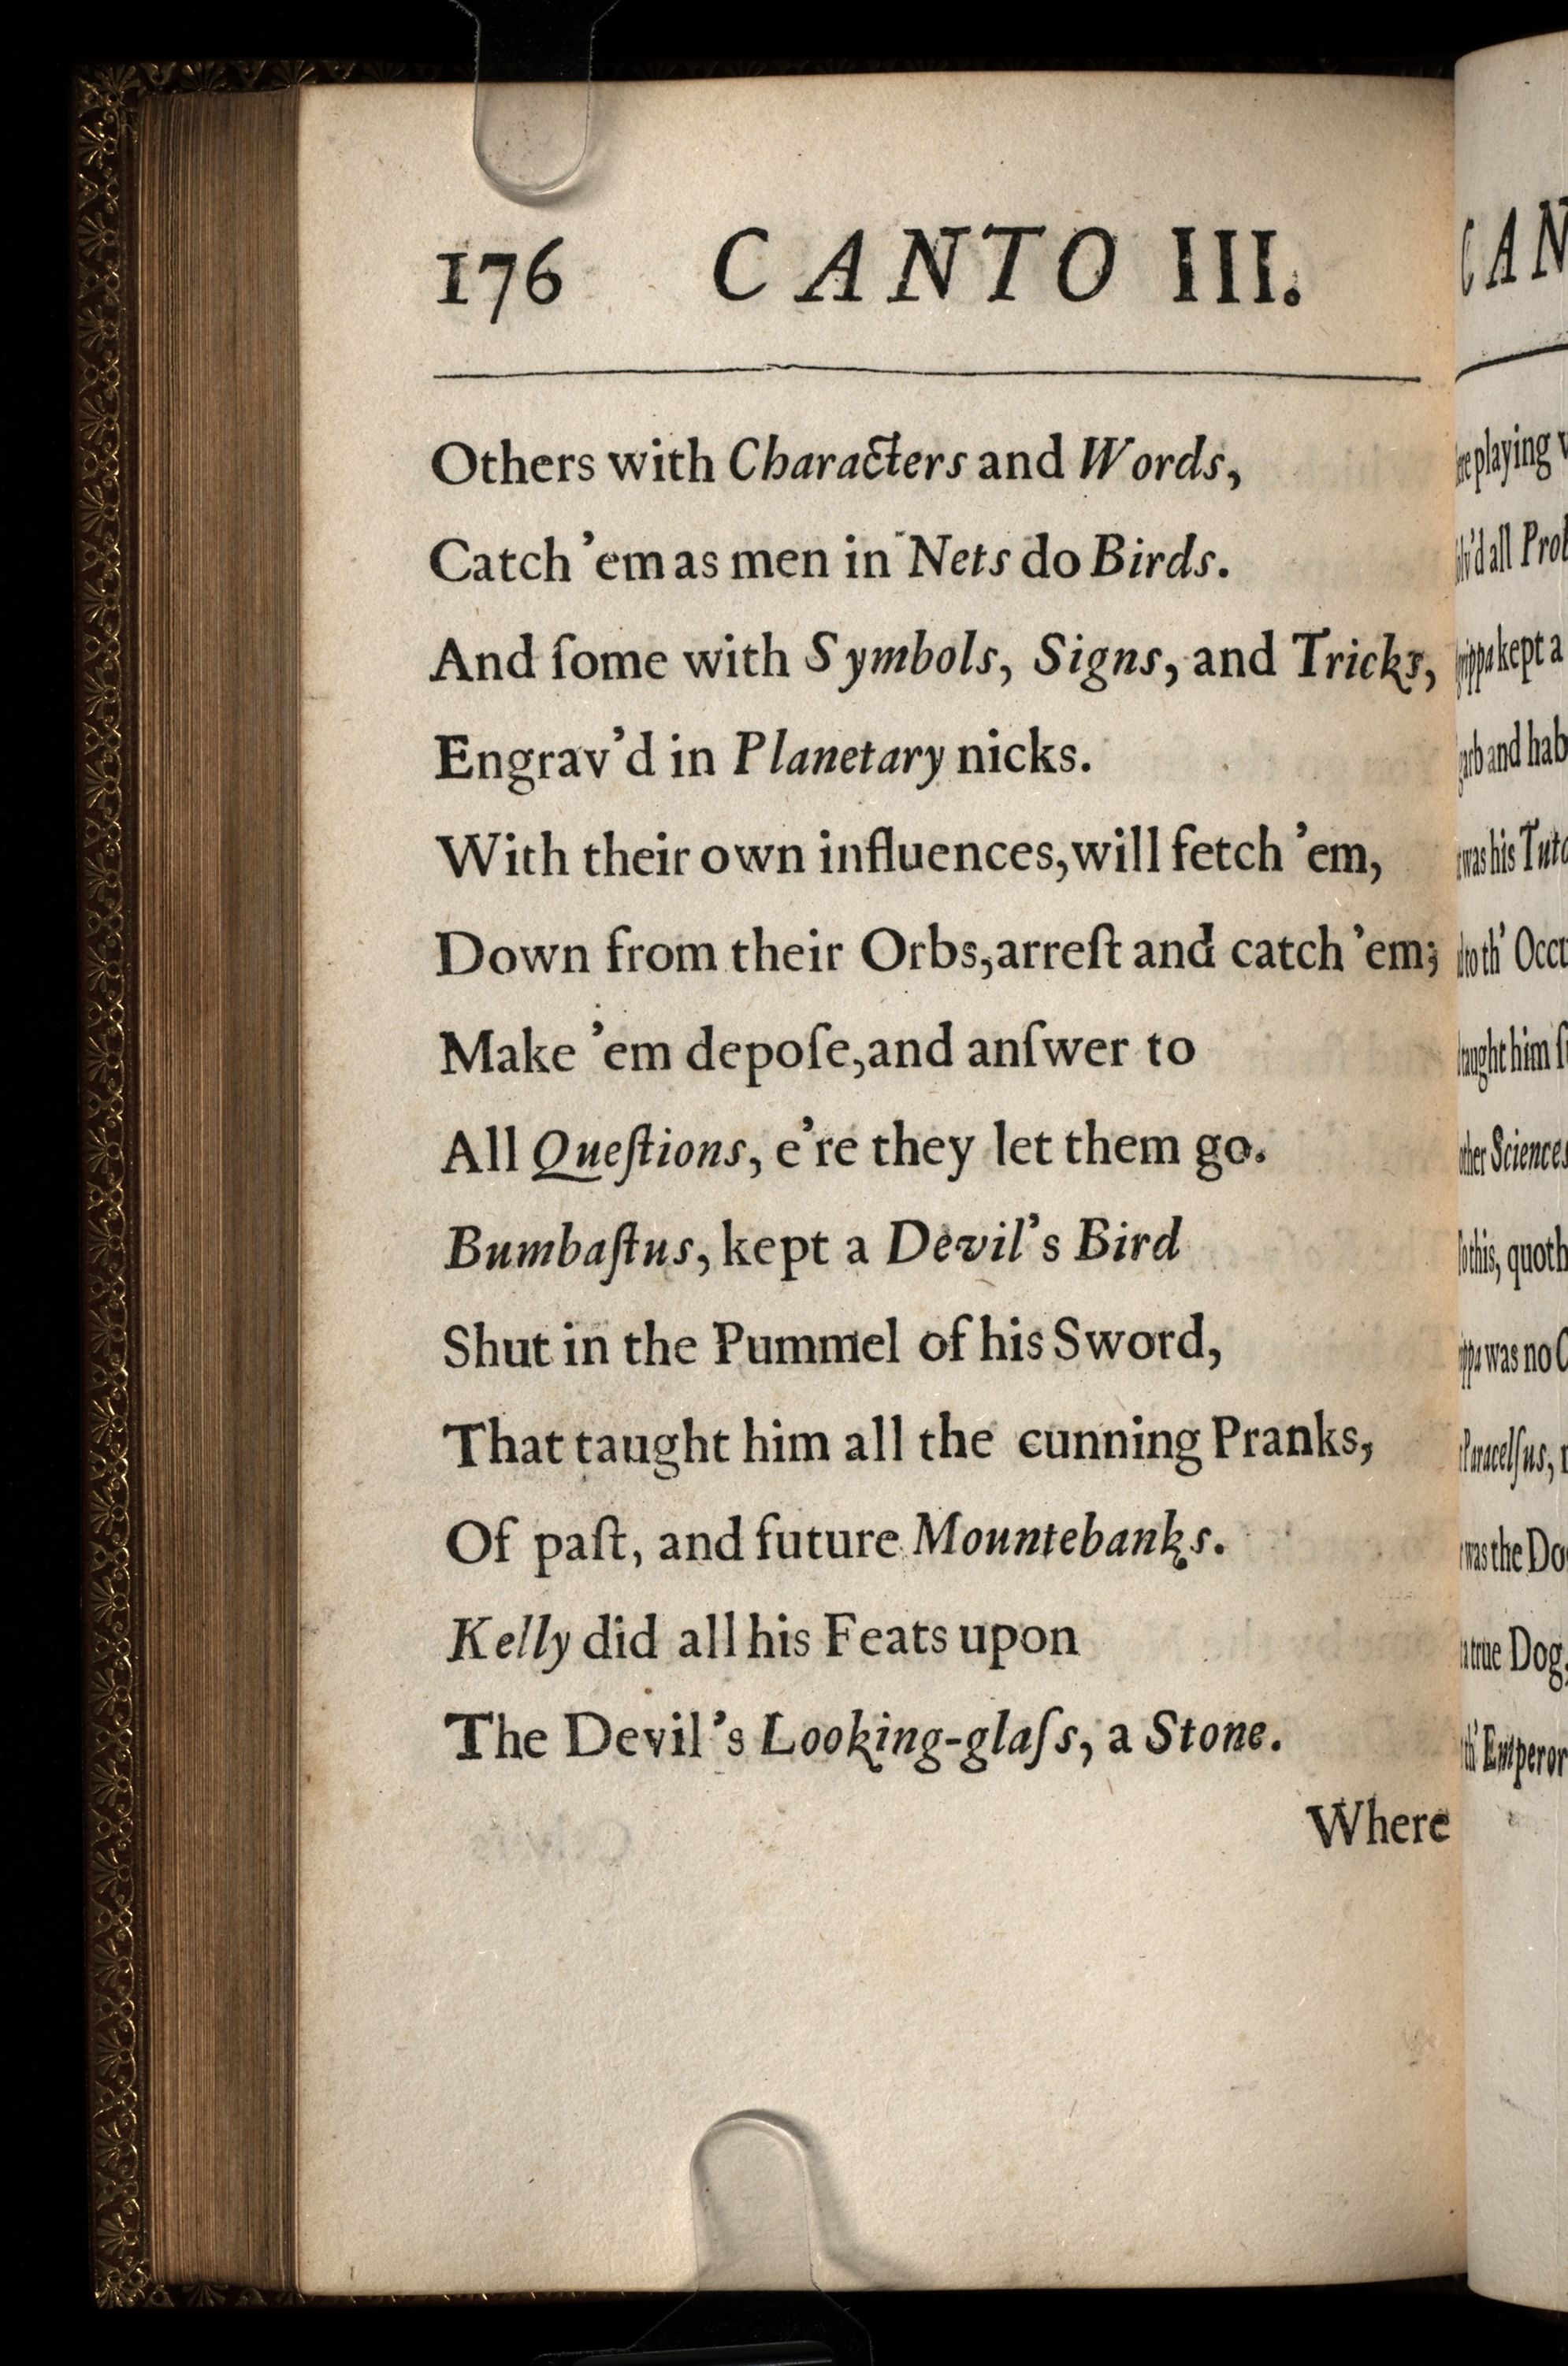 176 CANTO III.
Others with Characters and Words,
Catch 'em as men in Nets do Birds.
And ſome with Symbols, Signs, and Tricks,
Engrav'd in Planetary nicks.
With their own influences, will fetch 'em,
Down from their Orbs, arreſt and catch 'em;
Make 'em depoſe, and anſwer to
All Queſtions, e're they let them go.
Bumbaſtus, kept a Devil's Bird
Shut in the Pummel of his Sword,
That taught him all the cunning Pranks,
Of paſt, and future Mountebanks.
Kelly did all his Feats upon
The Devil's Looking-glaſs, a Stone.
Where
playing
all
kept a
and
was his
to th'
him
Sciences
this, quoth
was no
Paracelſus,
was the
true Dog,
th' Emperor